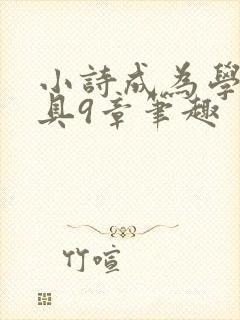 小詩成為學
具9章筆趣
竹喧